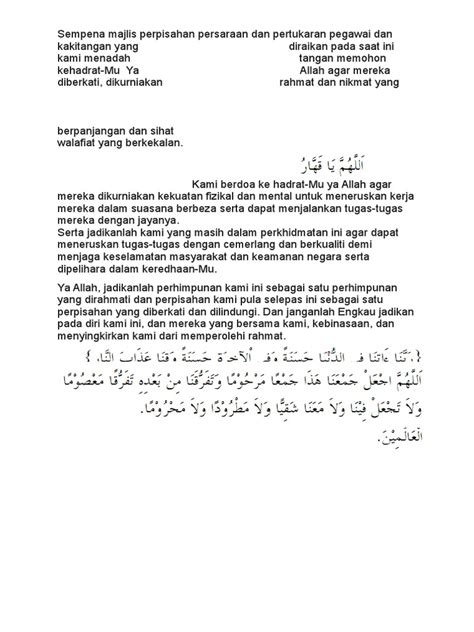 Sempena majlis perpisahan persaraan dan pertukaran pegawai dan
kakitangan yang diraikan pada saat ini
kami menadah tangan memohon
kehadrat-Mu Ya Allah agar mereka
diberkati, dikurniakan rahmat dan nikmat yang
berpanjangan dan sihat
walafiat yang berkekalan.
اَللَّهُمَّ يَا قَهَّارُ
Kami berdoa ke hadrat-Mu ya Allah agar
mereka dikurniakan kekuatan fizikal dan mental untuk meneruskan kerja
mereka dalam suasana berbeza serta dapat menjalankan tugas-tugas
mereka dengan jayanya.
Serta jadikanlah kami yang masih dalam perkhidmatan ini agar dapat
meneruskan tugas-tugas dengan cemerlang dan berkualiti demi
menjaga keselamatan masyarakat dan keamanan negara serta
dipelihara dalam keredhaan-Mu.
Ya Allah, jadikanlah perhimpunan kami ini sebagai satu perhimpunan
yang dirahmati dan perpisahan kami pula selepas ini sebagai satu
perpisahan yang diberkati dan dilindungi. Dan janganlah Engkau jadikan
pada diri kami ini, dan mereka yang bersama kami, kebinasaan, dan
menyingkirkan kami dari memperolehi rahmat.
{رَبَّنَا ءَاتِنَا فِي الدُّنْيَا حَسَنَةً وَفِي الْآخِرَةِ حَسَنَةً وَقِنَا عَذَابَ النَّارِ }
اَللَّهُمَّ اجْعَلْ جَمْعَنَا هَذَا جَمْعًا مَرْحُوْمًا وَتَفَرُّقَنَا مِنْ بَعْدِهِ تَفَرُّقًا مَعْصُوْمًا
وَلاَ تَجْعَلْ فِيْنَا وَلاَ مَعَنَا شَقِيًّا وَلاَ مَطْرُوْدًا وَلاَ مَحْرُوْمًا.
الْعَالَمِيْنَ.